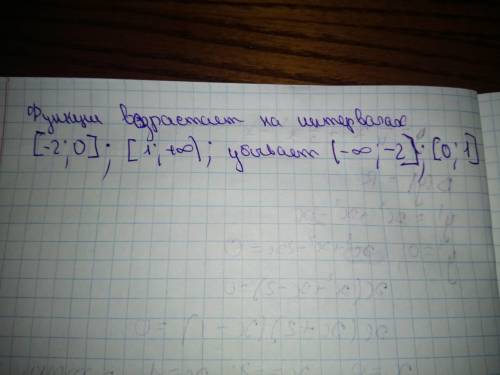 Функция возрастает на интервалах
[-2; 0]; [1; +∞); убывает (-∞; -2]; [0; 1]